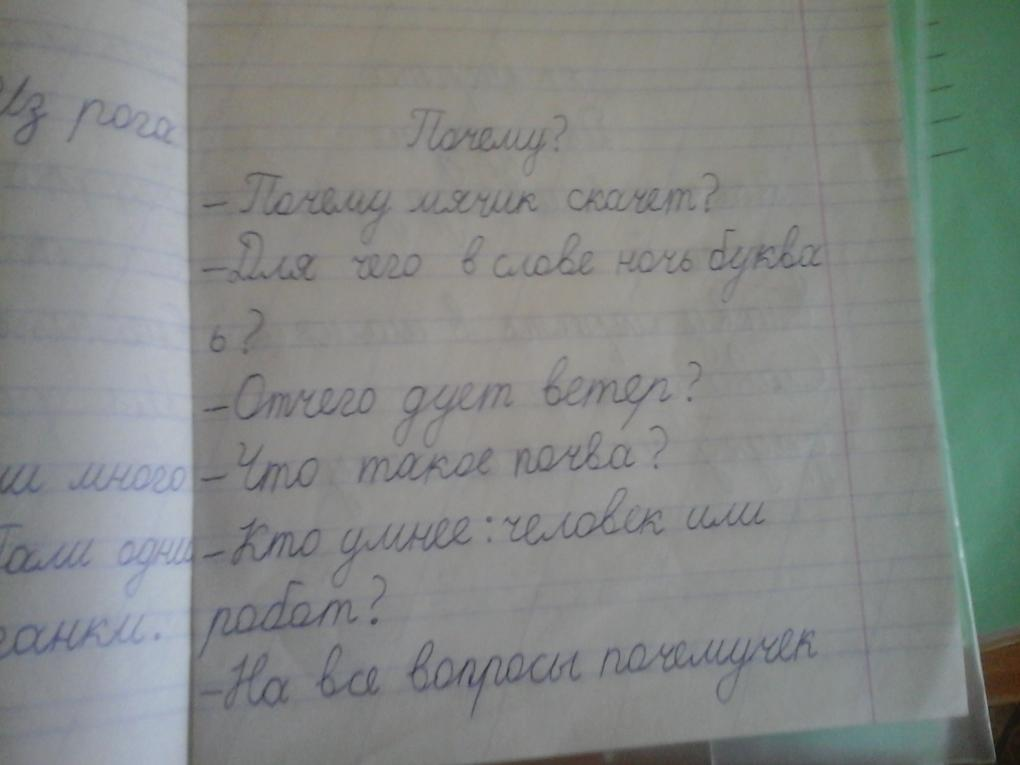 Из рога
ши много
одни
Почему?
- Почему мячик скачет?
- Для чего в слове ночь буква
ь?
- Отчего дует ветер?
- Что такое почва?
- Кто умнее: человек или
робот?
- На все вопросы почемучек